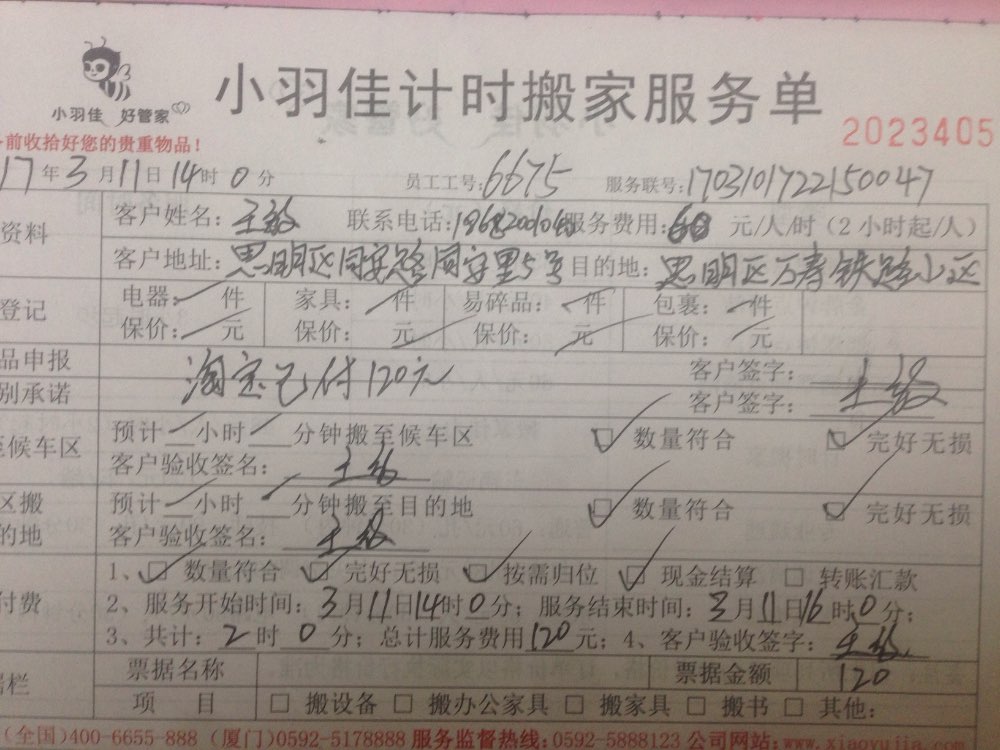 小羽佳 好管家
小羽佳计时搬家服务单
前收拾好您的贵重物品!
2023405
17年3月11日14时0分 员工工号:6675 服务联号:1703101722150047
资料 客户姓名:王敏 联系电话: 服务费用:60 元/人/时(2小时起/人)
客户地址:思明区同安路同安里5号 目的地:思明区万寿铁路小区
登记 电器: 件 家具: 件 易碎品: 件 包裹: 件
保价: 元 保价: 元 保价: 元 保价: 元
品申报 淘宝已付120元 客户签字:王敏
别承诺 客户签字:
至候车区 预计 小时 分钟搬至候车区 数量符合 完好无损
客户验收签名:王敏
区搬 预计 小时 分钟搬至目的地 数量符合 完好无损
的地 客户验收签名:王敏
1、 数量符合 完好无损 按需归位 现金结算 转账汇款
付费 2、服务开始时间:3月11日14时0分;服务结束时间:3月11日16时0分;
3、共计:2时0分;总计服务费用120元;4、客户验收签字:王敏
票据名称 票据金额 120
据栏 项 目 搬设备 搬办公家具 搬家具 搬书 其他:
(全国)400-6655-888 (厦门)0592-5178888 服务监督热线:0592-5888123 公司网站:www.xiaoyujia